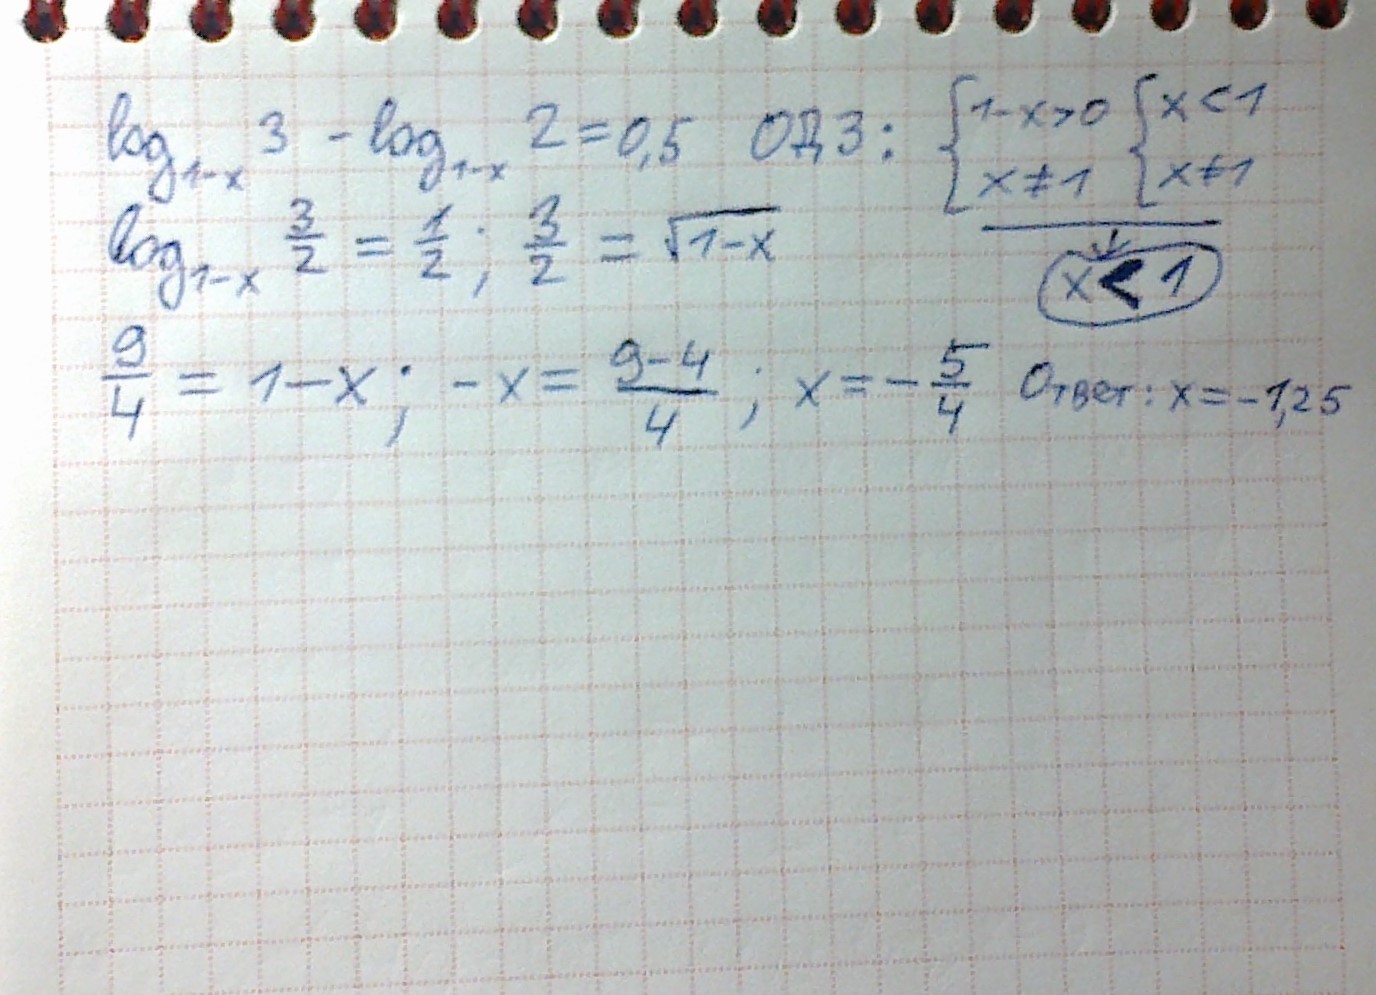 log₁₋ₓ 3 - log₁₋ₓ 2 = 0,5 ОДЗ: { 1-x>0 { x<1
x≠1 x≠1
log₁₋ₓ 3/2 = 1/2; 3/2 = √(1-x) ↓ x<1
9/4 = 1-x; -x = (9-4)/4; x = -5/4 Ответ: x=-1,25